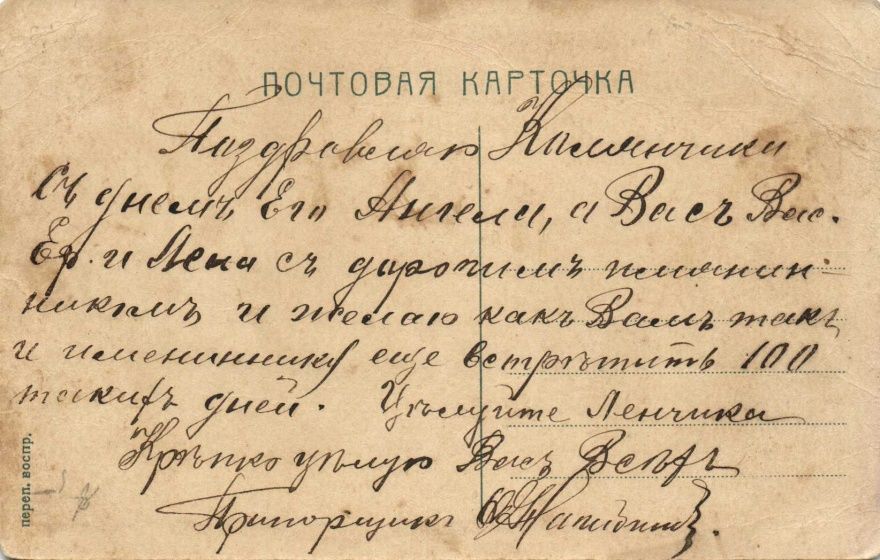 ПОЧТОВАЯ КАРТОЧКА
Паздравляю Колянчика
Съ днемъ Его Ангела, а Васъ Вас.
Еф. и Лена съ дорогимъ имянин-
никомъ и желаю какъ Вамъ такъ
и имениннику еще встрѣтить 100
такихъ дней. Цѣлуйте Ленчика
Крѣпко цѣлую Васъ Всѣхъ
Прапорщикъ
переп. воспр.